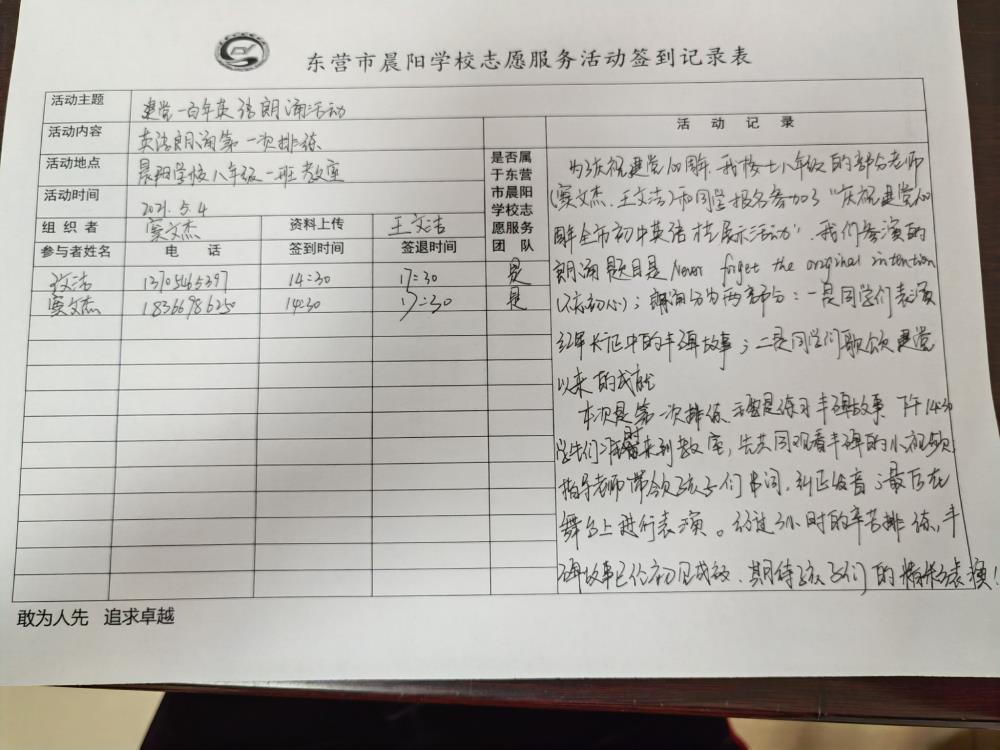 东营市晨阳学校志愿服务活动签到记录表
活动主题 建党一百年英语朗诵活动
活动内容 英语朗诵第一次排练
活动地点 晨阳学校八年级一班教室
活动时间 2021.5.4
组织者 窦文杰 资料上传 王文洁
参与者姓名 电话 签到时间 签退时间
是否属
于东营
市晨阳
学校志
愿服务
团队
文洁 13705465397 14:30 17:30 是
窦文杰 18366986250 14:30 17:30 是
活动记录
为庆祝建党100周年,我校七八年级的部分老师
(窦文杰、王文洁)和同学报名参加了“庆祝建党100
周年全市初中英语 展示活动”,我们参演的
朗诵题目是 Never forget the original intention
(不忘初心);朗诵分为两部分:一是同学们表演
红军长征中的半碗故事;二是同学们歌颂建党
以来的成就
本次是第一次排练 主要是练习半碗故事 下午14:30
学生们准时来到教室,先共同观看半碗的小视频,
指导老师带领孩子们串词,纠正发音;最后在
舞台上进行表演。经过3小时的辛苦排练,半
碗故事已经初见成效,期待孩子们的精彩表演!
敢为人先 追求卓越